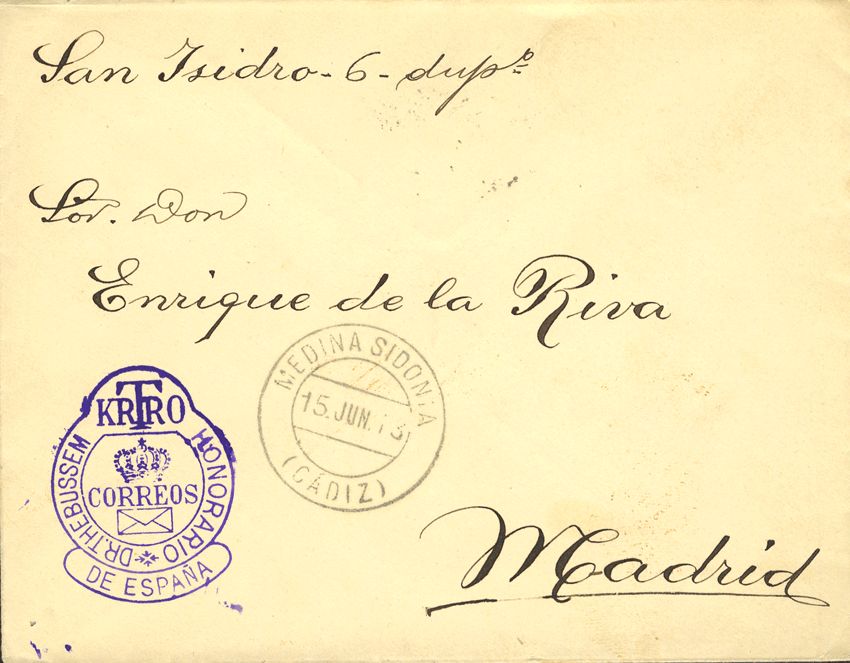 San Isidro - 6 - dupº
Sor. Don
Enrique de la Riva
MEDINA SIDONIA
15. JUN. 13
(CÁDIZ)
KRTRO
DR. THEBUSSEM HONORARIO
CORREOS
DE ESPAÑA
Madrid